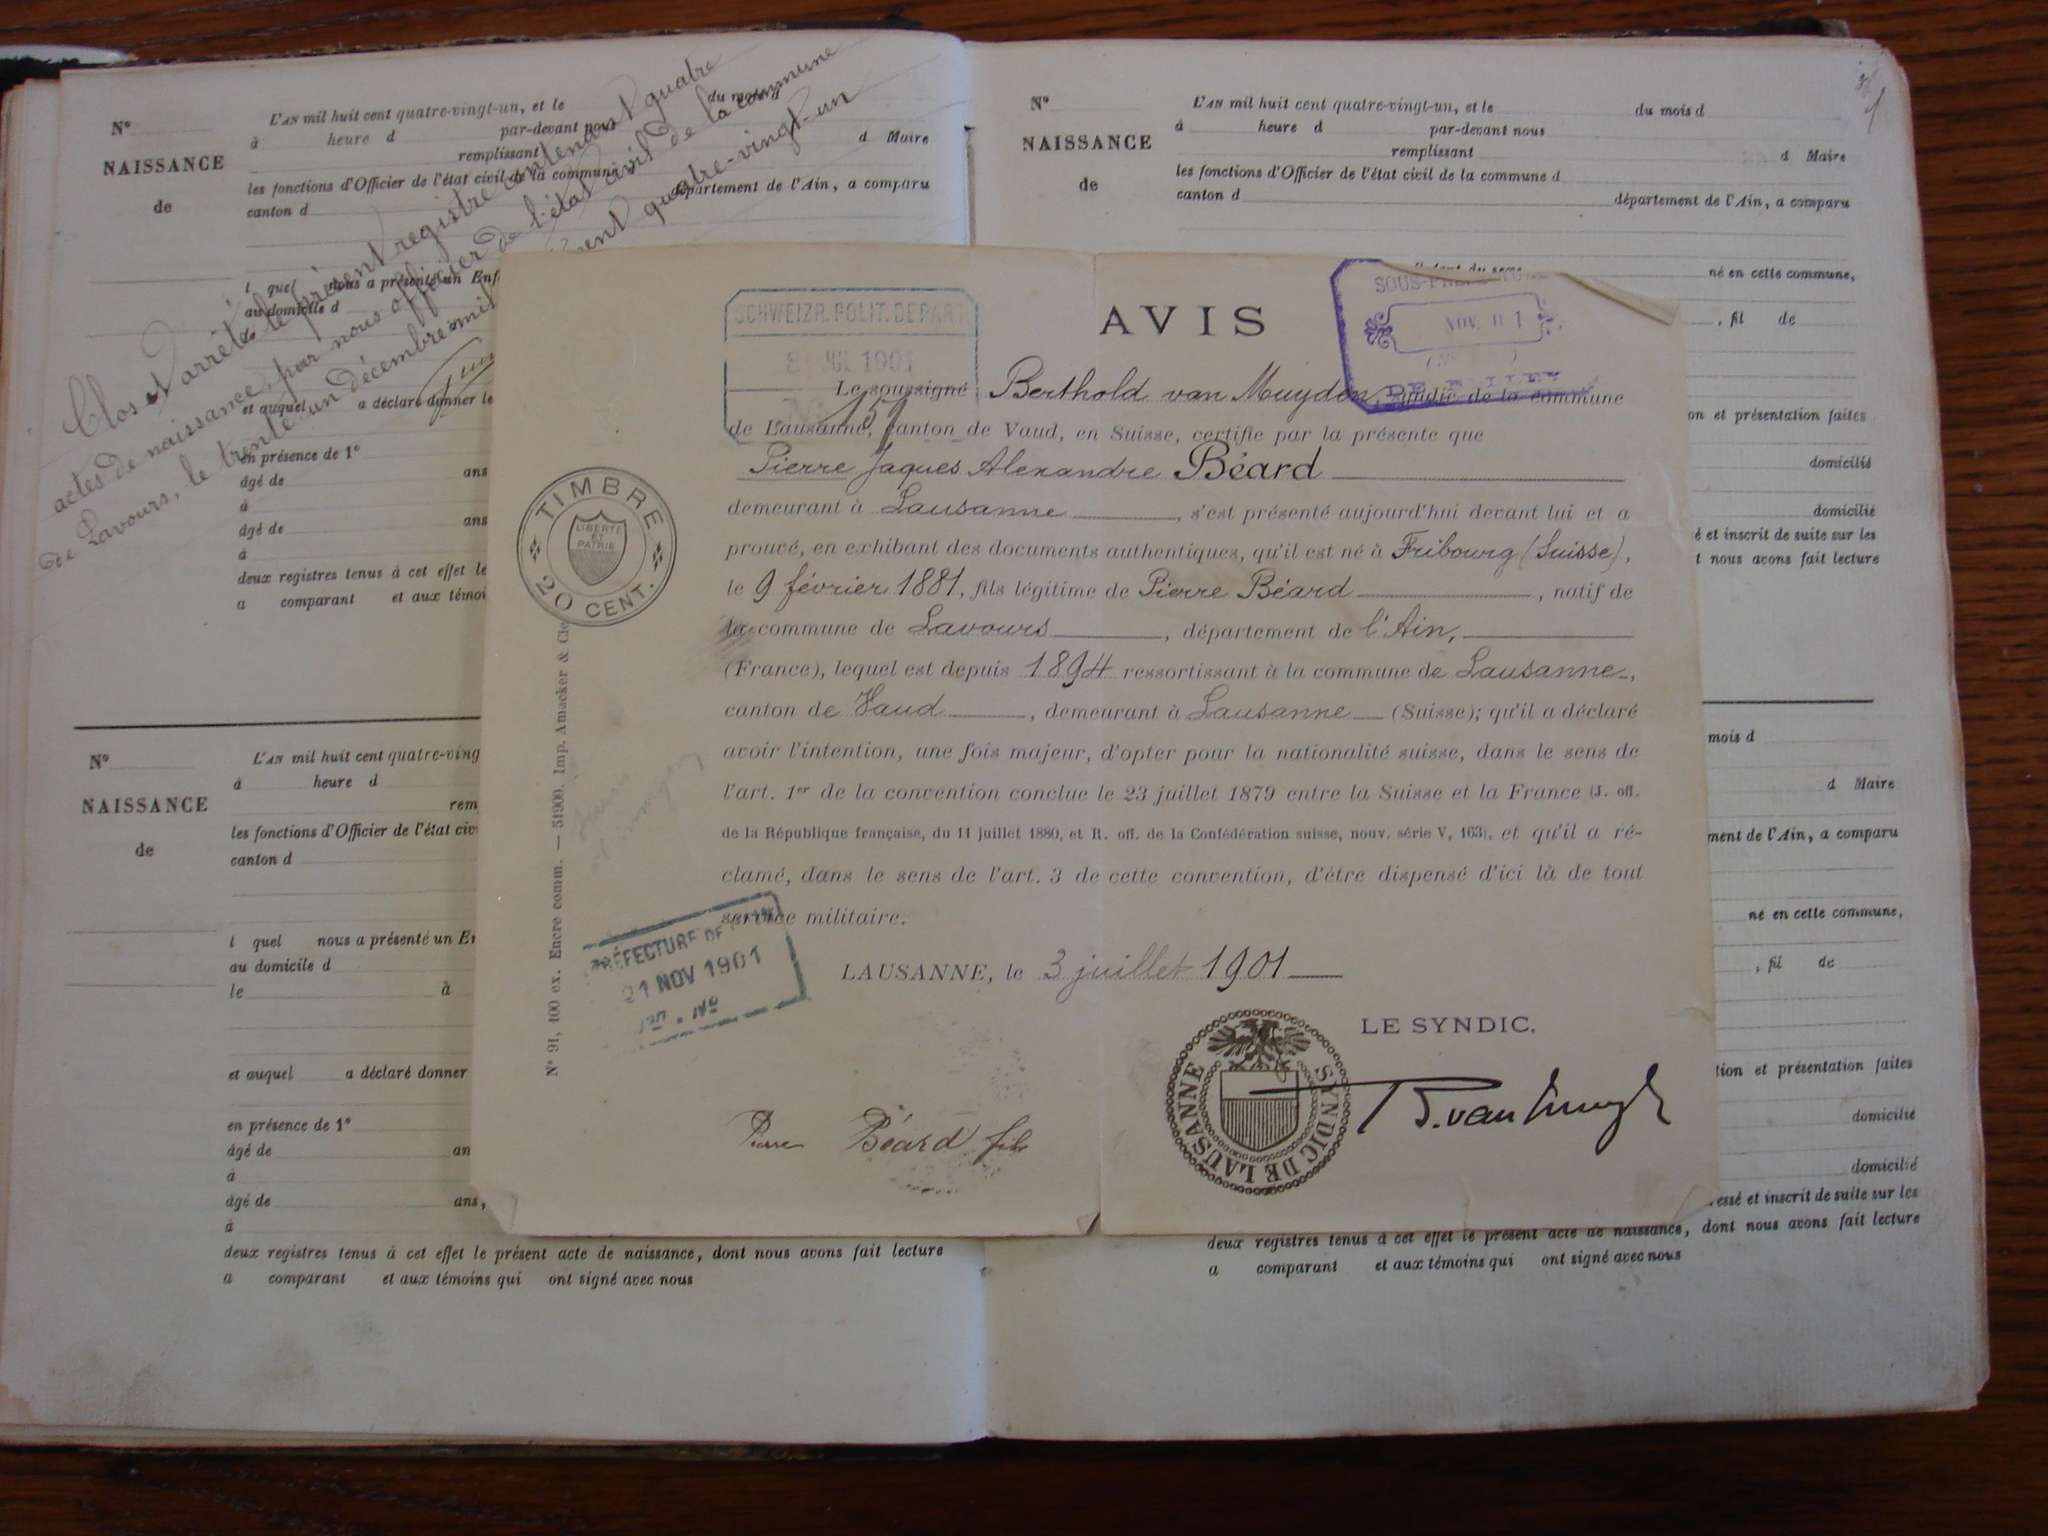 N°
NAISSANCE
de
L'AN mil huit cent quatre-vingt-un, et le du mois d
à heure d par-devant nous
remplissant d Maire
les fonctions d'Officier de l'état civil de la commune d
canton d département de l'Ain, a comparu
l quel nous a présenté un Enf
au domicile d
et auquel a déclaré donner le
en présence de 1°
âgé de ans
à
âgé de ans
à
deux registres tenus à cet effet le
a comparant et aux témoi
Clos et arrêté le présent registre contenant quatre
actes de naissance, par nous officier de l'état civil de la commune
de Lavours, le trente un décembre mil
cent quatre-vingt-un
N°
NAISSANCE
de
L'AN mil huit cent quatre-ving
à heure d
rem
les fonctions d'Officier de l'état civ
canton d
l quel nous a présenté un En
au domicile d
le à
et auquel a déclaré donner
en présence de 1°
âgé de an
à
âgé de ans,
à
deux registres tenus à cet effet le présent acte de naissance, dont nous avons fait lecture
a comparant et aux témoins qui ont signé avec nous
N°
NAISSANCE
de
L'AN mil huit cent quatre-vingt-un, et le du mois d
à heure d par-devant nous
remplissant d Maire
les fonctions d'Officier de l'état civil de la commune d
canton d département de l'Ain, a comparu
né en cette commune,
, fil de
on et présentation faites
domicilié
domicilié
é et inscrit de suite sur les
t nous avons fait lecture
mois d
d Maire
ment de l'Ain, a comparu
né en cette commune,
, fil de
tion et présentation faites
domicilié
domicilié
essé et inscrit de suite sur les
deux registres tenus à cet effet le présent acte de naissance, dont nous avons fait lecture
a comparant et aux témoins qui ont signé avec nous
SCHWEIZR. POLIT. DEPART.
8 JUL 1901
AVIS
NOV. 01
Le soussigné Berthold van Muyden, syndic de la commune
de Lausanne, canton de Vaud, en Suisse, certifie par la présente que
Pierre Jaques Alexandre Béard
demeurant à Lausanne, s'est présenté aujourd'hui devant lui et a
prouvé, en exhibant des documents authentiques, qu'il est né à Fribourg (Suisse),
le 9 février 1881, fils légitime de Pierre Béard, natif de
la commune de Lavours, département de l'Ain,
(France), lequel est depuis 1894 ressortissant à la commune de Lausanne,
canton de Vaud, demeurant à Lausanne (Suisse); qu'il a déclaré
avoir l'intention, une fois majeur, d'opter pour la nationalité suisse, dans le sens de
l'art. 1er de la convention conclue le 23 juillet 1879 entre la Suisse et la France (J. off.
de la République française, du 11 juillet 1880, et R. off. de la Confédération suisse, nouv. série V, 163), et qu'il a ré-
clamé, dans le sens de l'art. 3 de cette convention, d'être dispensé d'ici là de tout
service militaire.
LAUSANNE, le 3 juillet 1901
LE SYNDIC,
B. van Muyden
SYNDIC DE LAUSANNE
Pierre Béard fils
PRÉFECTURE DE
21 NOV 1901
TIMBRE
LIBERTÉ
ET
PATRIE
20 CENT.
N° 91, 100 ex. Encre comm. — 51900. Imp. Amacker & Cie